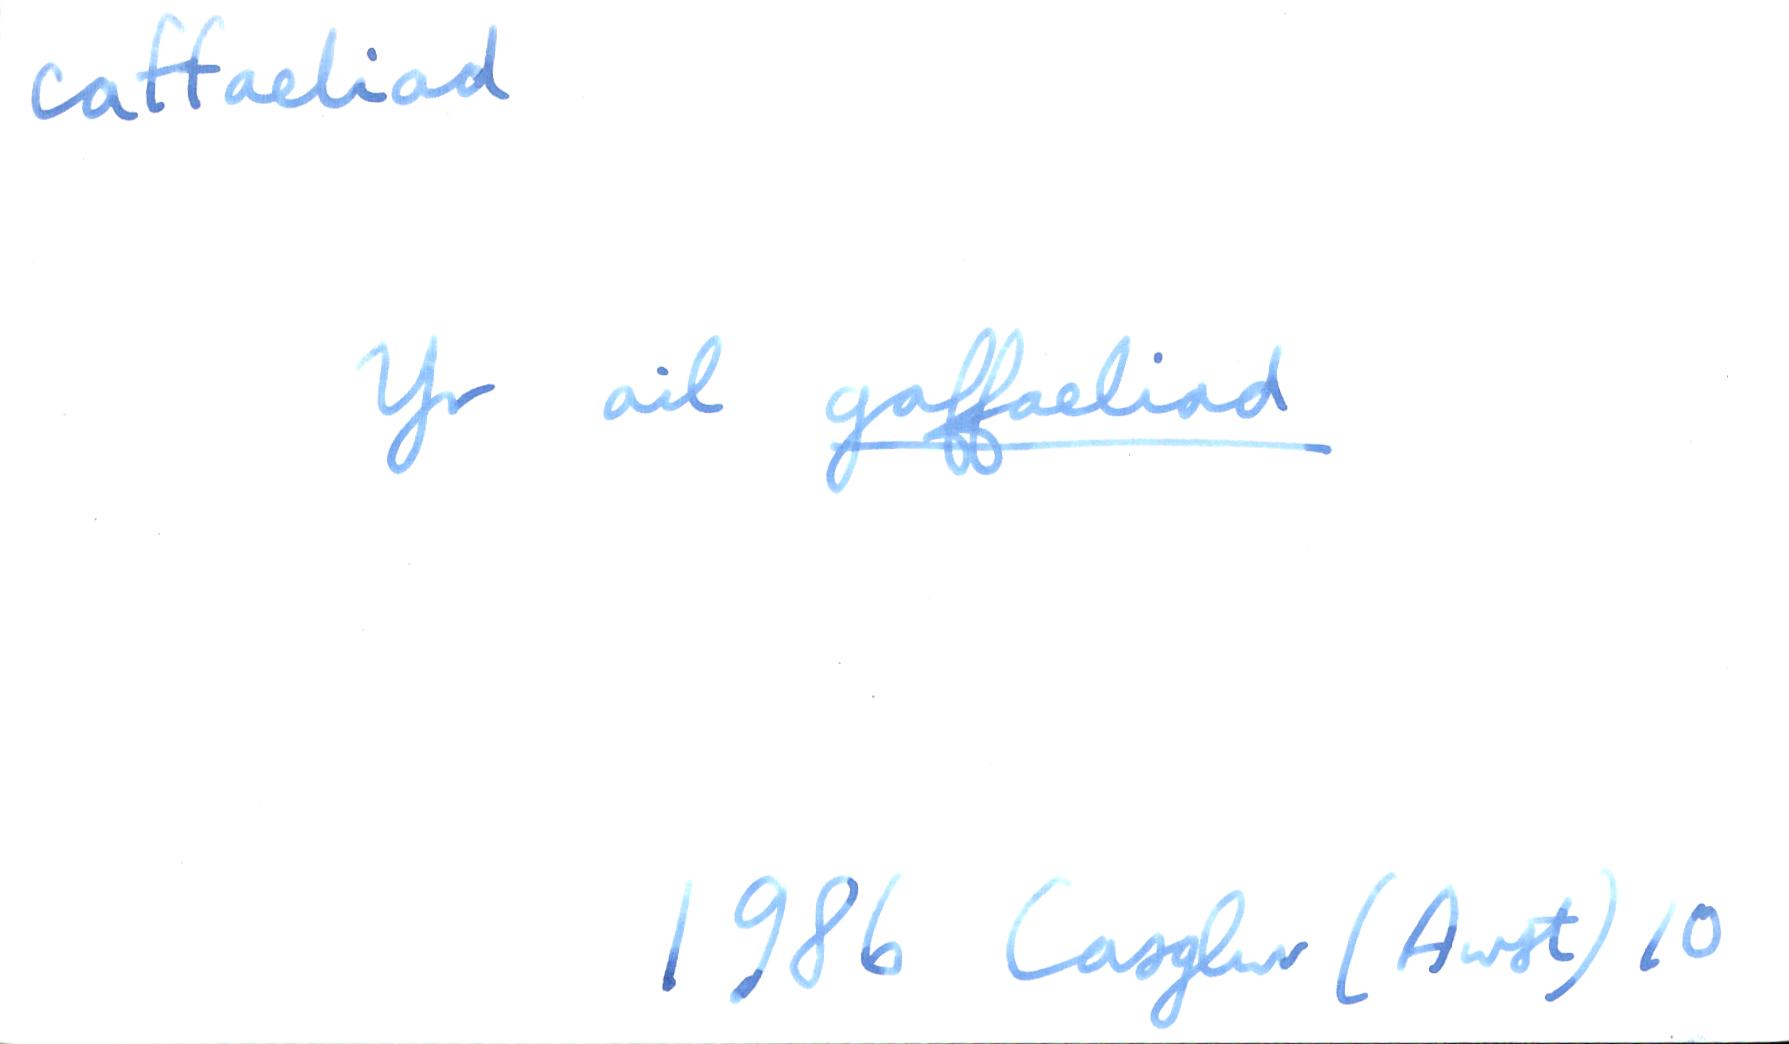 caffaeliad
Yr ail gaffaeliad
1986 Casglwr (Awst) 10